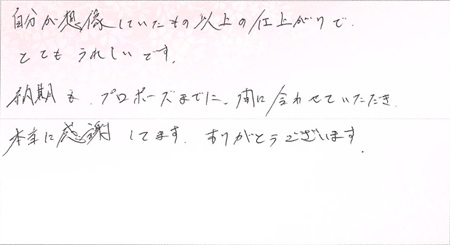 自分が想像していたもの以上の仕上がりで
とてもうれしいです。
納期も、プロポーズまでに、間に合わせていただき
本当に感謝してます。ありがとうございます。